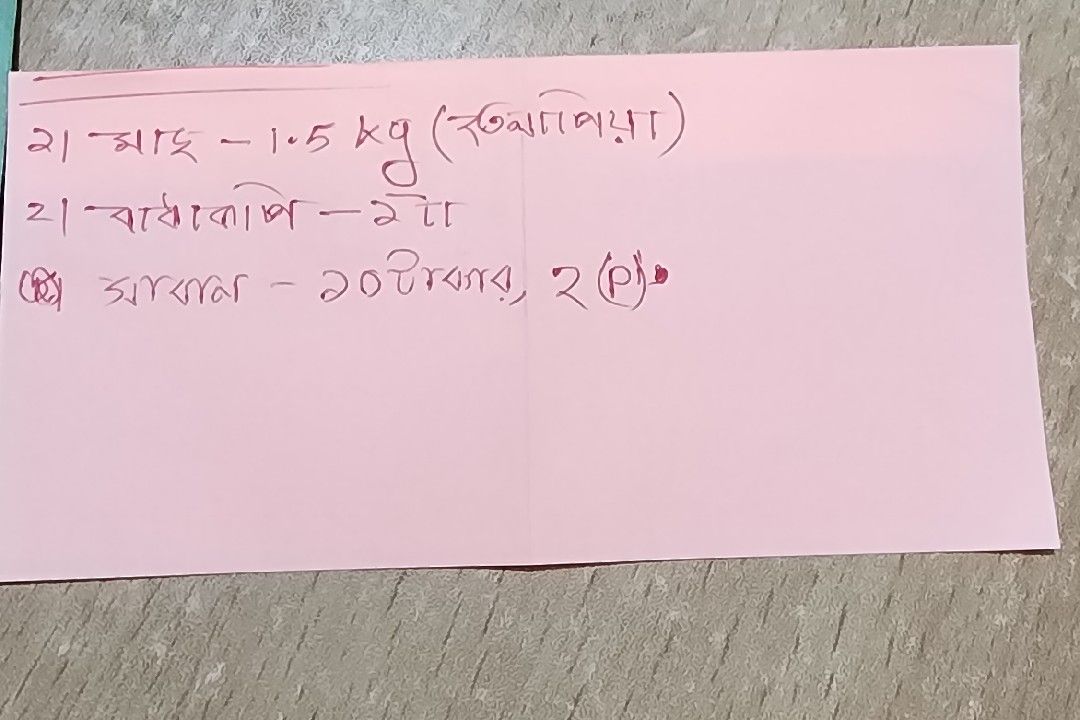 ১। মাছ - 1.5 kg (তেলাপিয়া)
২। বাধাকপি - ১টা
সাবান - ১০ টাকার, ২ (P)